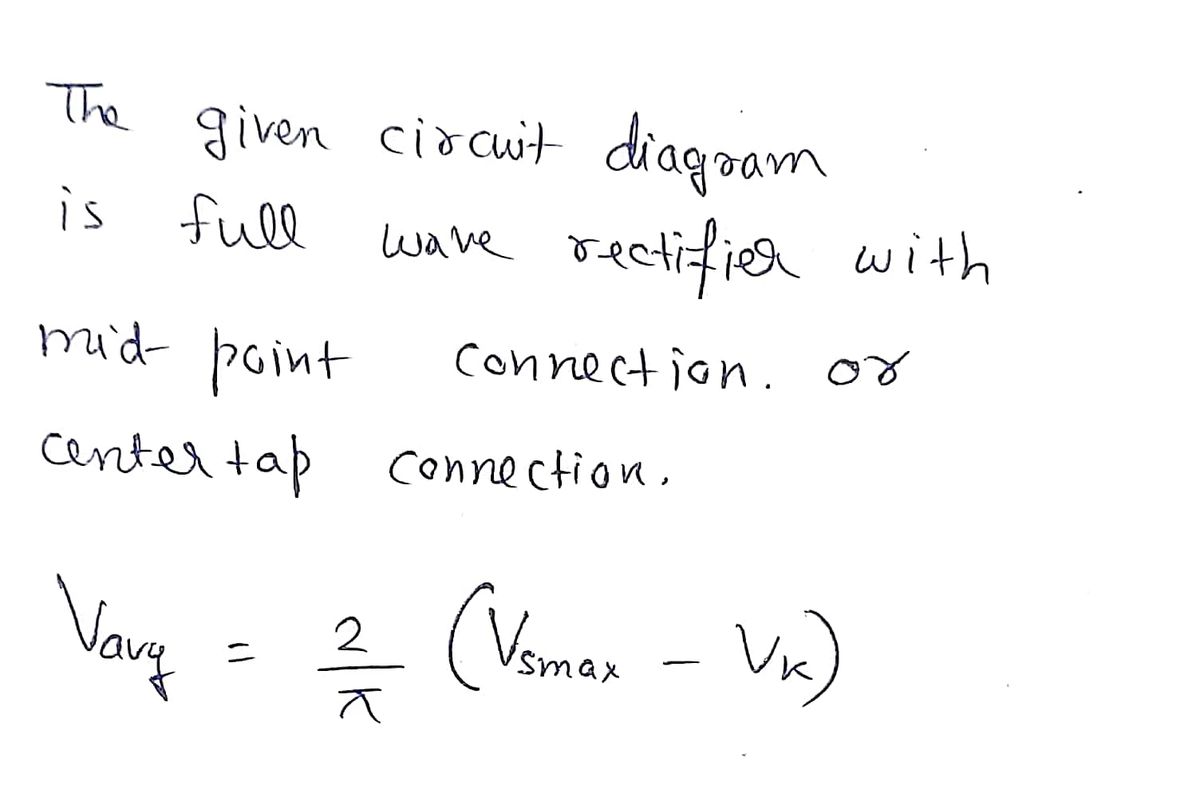 The given circuit diagram
is full wave rectifier with
mid-point connection. or
center tap connection.
Vavg = 2/π (Vsmax - VK)